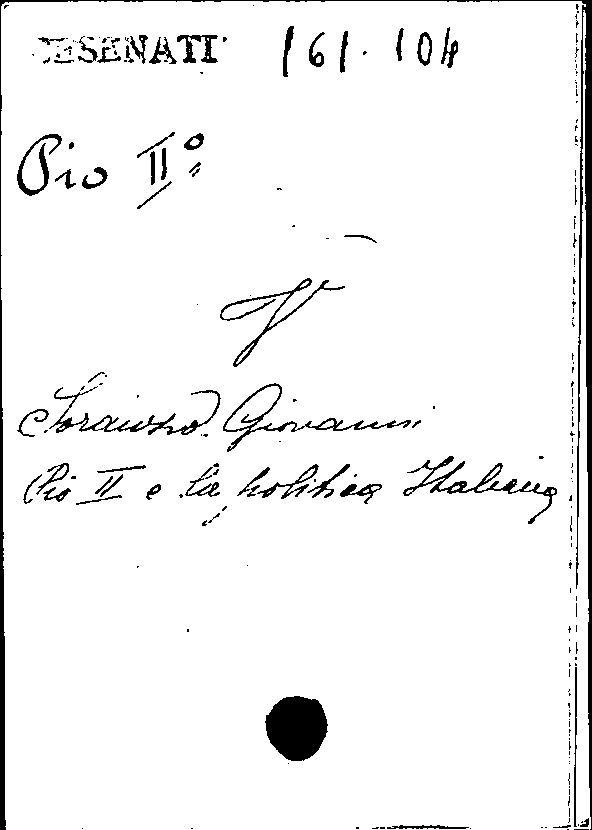 CESENATI 161.104
Pio IIº
V
Soranzo Giovanni
Pio II e la politica Italiana